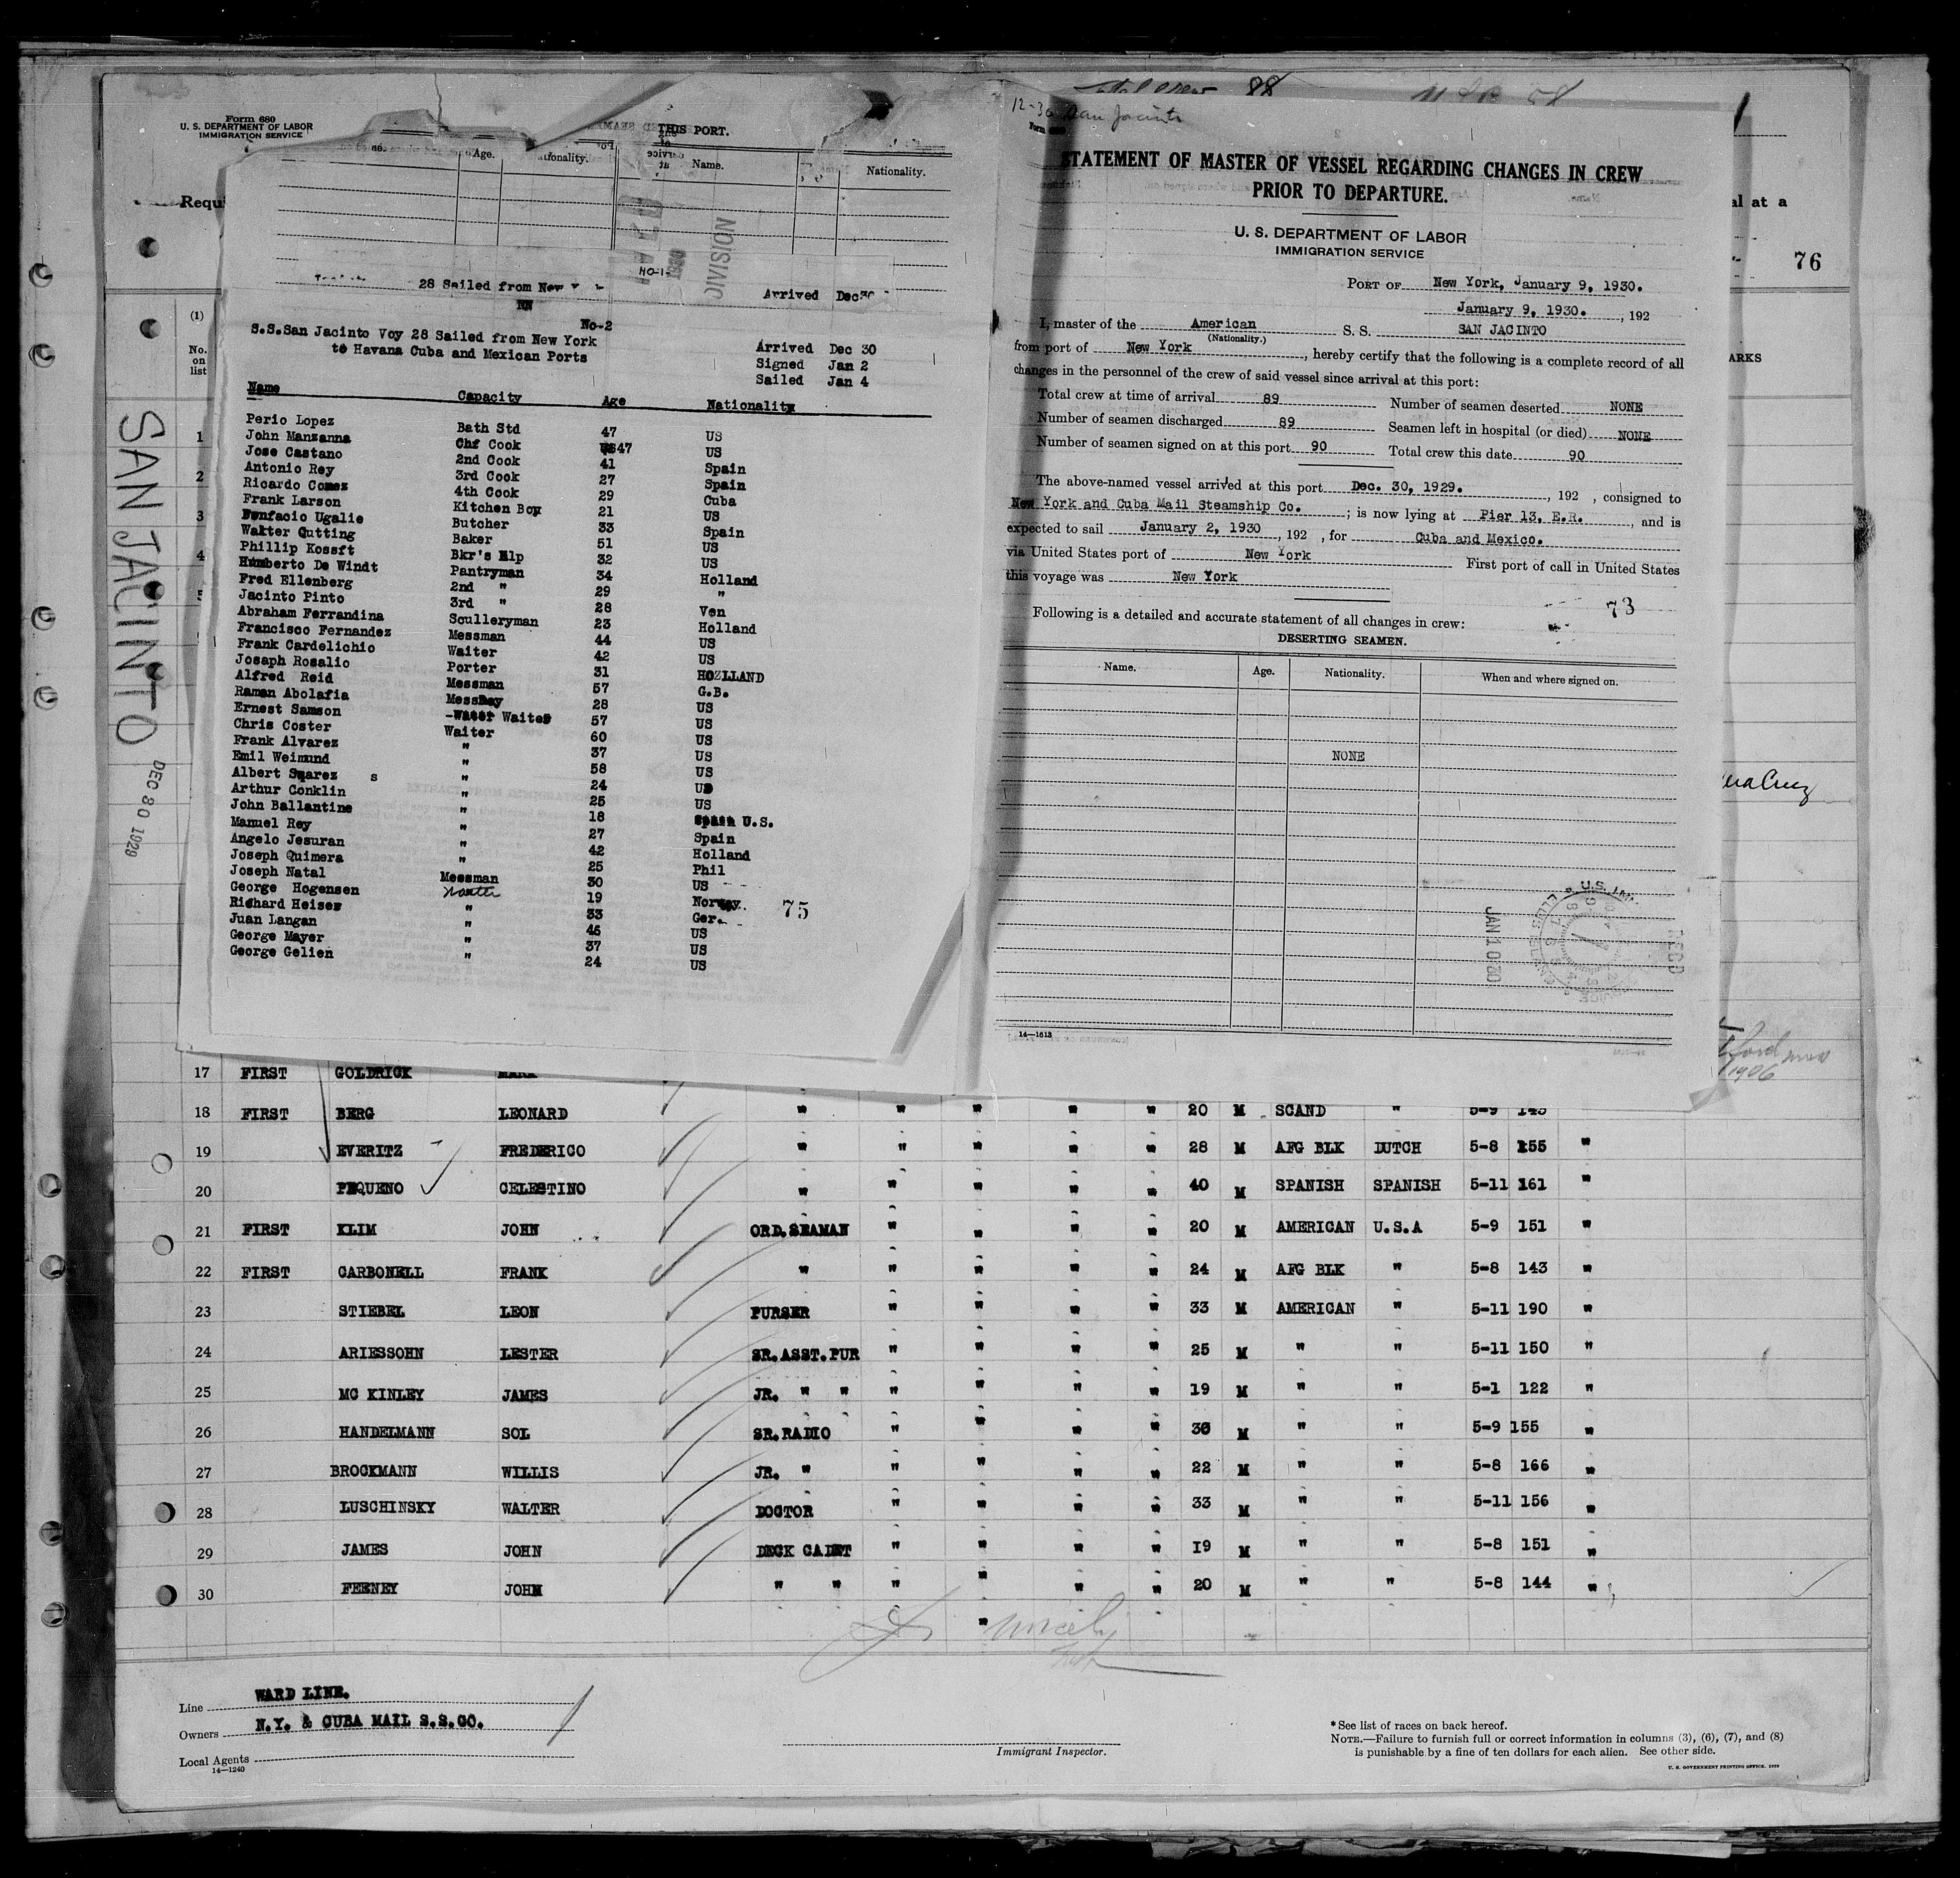 Form 680
U. S. DEPARTMENT OF LABOR
IMMIGRATION SERVICE
Requ
(1)
No.
on
list
1
2
3
4
5
SAN JACINTO
DEC 30 1929
THIS PORT.
Age. Name. Nationality.
28 Sailed from New
NO-1-
Arrived Dec 30
No-2
S.S.San Jacinto Voy 28 Sailed from New York
to Havana Cuba and Mexican Ports
Arrived Dec 30
Signed Jan 2
Sailed Jan 4
Name Capacity Age Nationality
Perio Lopez Bath Std 47 US
John Manzanna Chf Cook 47 US
Jose Castano 2nd Cook 41 Spain
Antonio Rey 3rd Cook 27 Spain
Ricardo Comez 4th Cook 29 Cuba
Frank Larson Kitchen Boy 21 US
Bonfacio Ugalie Butcher 33 Spain
Walter Qutting Baker 51 US
Phillip Kossft Bkr's Hlp 32 US
Humberto De Windt Pantryman 34 Holland
Fred Ellenberg 2nd " 29 "
Jacinto Pinto 3rd " 28 Ven
Abraham Ferrandina Sculleryman 23 Holland
Francisco Fernandez Messman 44 US
Frank Cardelichio Waiter 42 US
Josaph Rosalio Porter 31 HOLLAND
Alfred Reid Messman 57 G.B.
Raman Abolafia MessBoy 28 US
Ernest Samson Waiter 57 US
Chris Coster Waiter 60 US
Frank Alvarez " 37 US
Emil Weimund " 58 US
Albert Suarez s " 24 US
Arthur Conklin " 25 US
John Ballantine " 18 U.S.
Manuel Rey " 27 Spain
Angelo Jesuran " 42 Holland
Joseph Quimera " 25 Phil
Joseph Natal Messman 30 US
George Hogensen Waiter 19 Norway
Richard Heises " 33 Ger.
Juan Langan " 46 US
George Mayer " 37 US
George Gelien " 24 US
75
Total crew 88
12-30 San Jacinto
STATEMENT OF MASTER OF VESSEL REGARDING CHANGES IN CREW
PRIOR TO DEPARTURE.
U. S. DEPARTMENT OF LABOR
IMMIGRATION SERVICE
PORT OF New York, January 9, 1930.
January 9, 1930. , 192
I, master of the American S. S. SAN JACINTO
(Nationality.)
from port of New York , hereby certify that the following is a complete record of all
changes in the personnel of the crew of said vessel since arrival at this port:
Total crew at time of arrival 89 Number of seamen deserted NONE
Number of seamen discharged 89 Seamen left in hospital (or died) NONE
Number of seamen signed on at this port 90 Total crew this date 90
The above-named vessel arrived at this port Dec. 30, 1929. , 192 , consigned to
New York and Cuba Mail Steamship Co. ; is now lying at Pier 13, E.R. , and is
expected to sail January 2, 1930 , 192 , for Cuba and Mexico.
via United States port of New York First port of call in United States
this voyage was New York
73
Following is a detailed and accurate statement of all changes in crew:
DESERTING SEAMEN.
Name. Age. Nationality. When and where signed on.
NONE
JAN 10
REC'D
14—1613
al at a
76
ARKS
Vera Cruz
1906
17 FIRST GOLDRICK MARK
18 FIRST BERG LEONARD " " " " " 20 M SCAND " 5-9 145
19 EVERITZ FREDERICO " " " " " 28 M AFG BLK DUTCH 5-8 155 "
20 PEQUENO CELESTINO " " " " " 40 M SPANISH SPANISH 5-11 161 "
21 FIRST KLIM JOHN ORD.SEAMAN " " " " 20 M AMERICAN U.S.A 5-9 151 "
22 FIRST CARBONELL FRANK " " " " " 24 M AFG BLK " 5-8 143 "
23 STIEBEL LEON PURSER " " " " 33 M AMERICAN " 5-11 190 "
24 ARIESSOHN LESTER SR.ASST.PUR " " " " 25 M " " 5-11 150 "
25 MC KINLEY JAMES JR. " " " " " " 19 M " " 5-1 122 "
26 HANDELMANN SOL SR.RADIO " " " " 30 M " " 5-9 155 "
27 BROCKMANN WILLIS JR. " " " " " 22 M " " 5-8 166 "
28 LUSCHINSKY WALTER DOCTOR " " " " 33 M " " 5-11 156 "
29 JAMES JOHN DECK CADET " " " " 19 M " " 5-8 151 "
30 FEENEY JOHN " " " " " " 20 M " " 5-8 144 "
Line WARD LINE.
Owners N.Y. & CUBA MAIL S.S.CO.
Local Agents
14—1240
Immigrant Inspector.
*See list of races on back hereof.
NOTE.—Failure to furnish full or correct information in columns (3), (6), (7), and (8)
is punishable by a fine of ten dollars for each alien. See other side.
U. S. GOVERNMENT PRINTING OFFICE. 1929